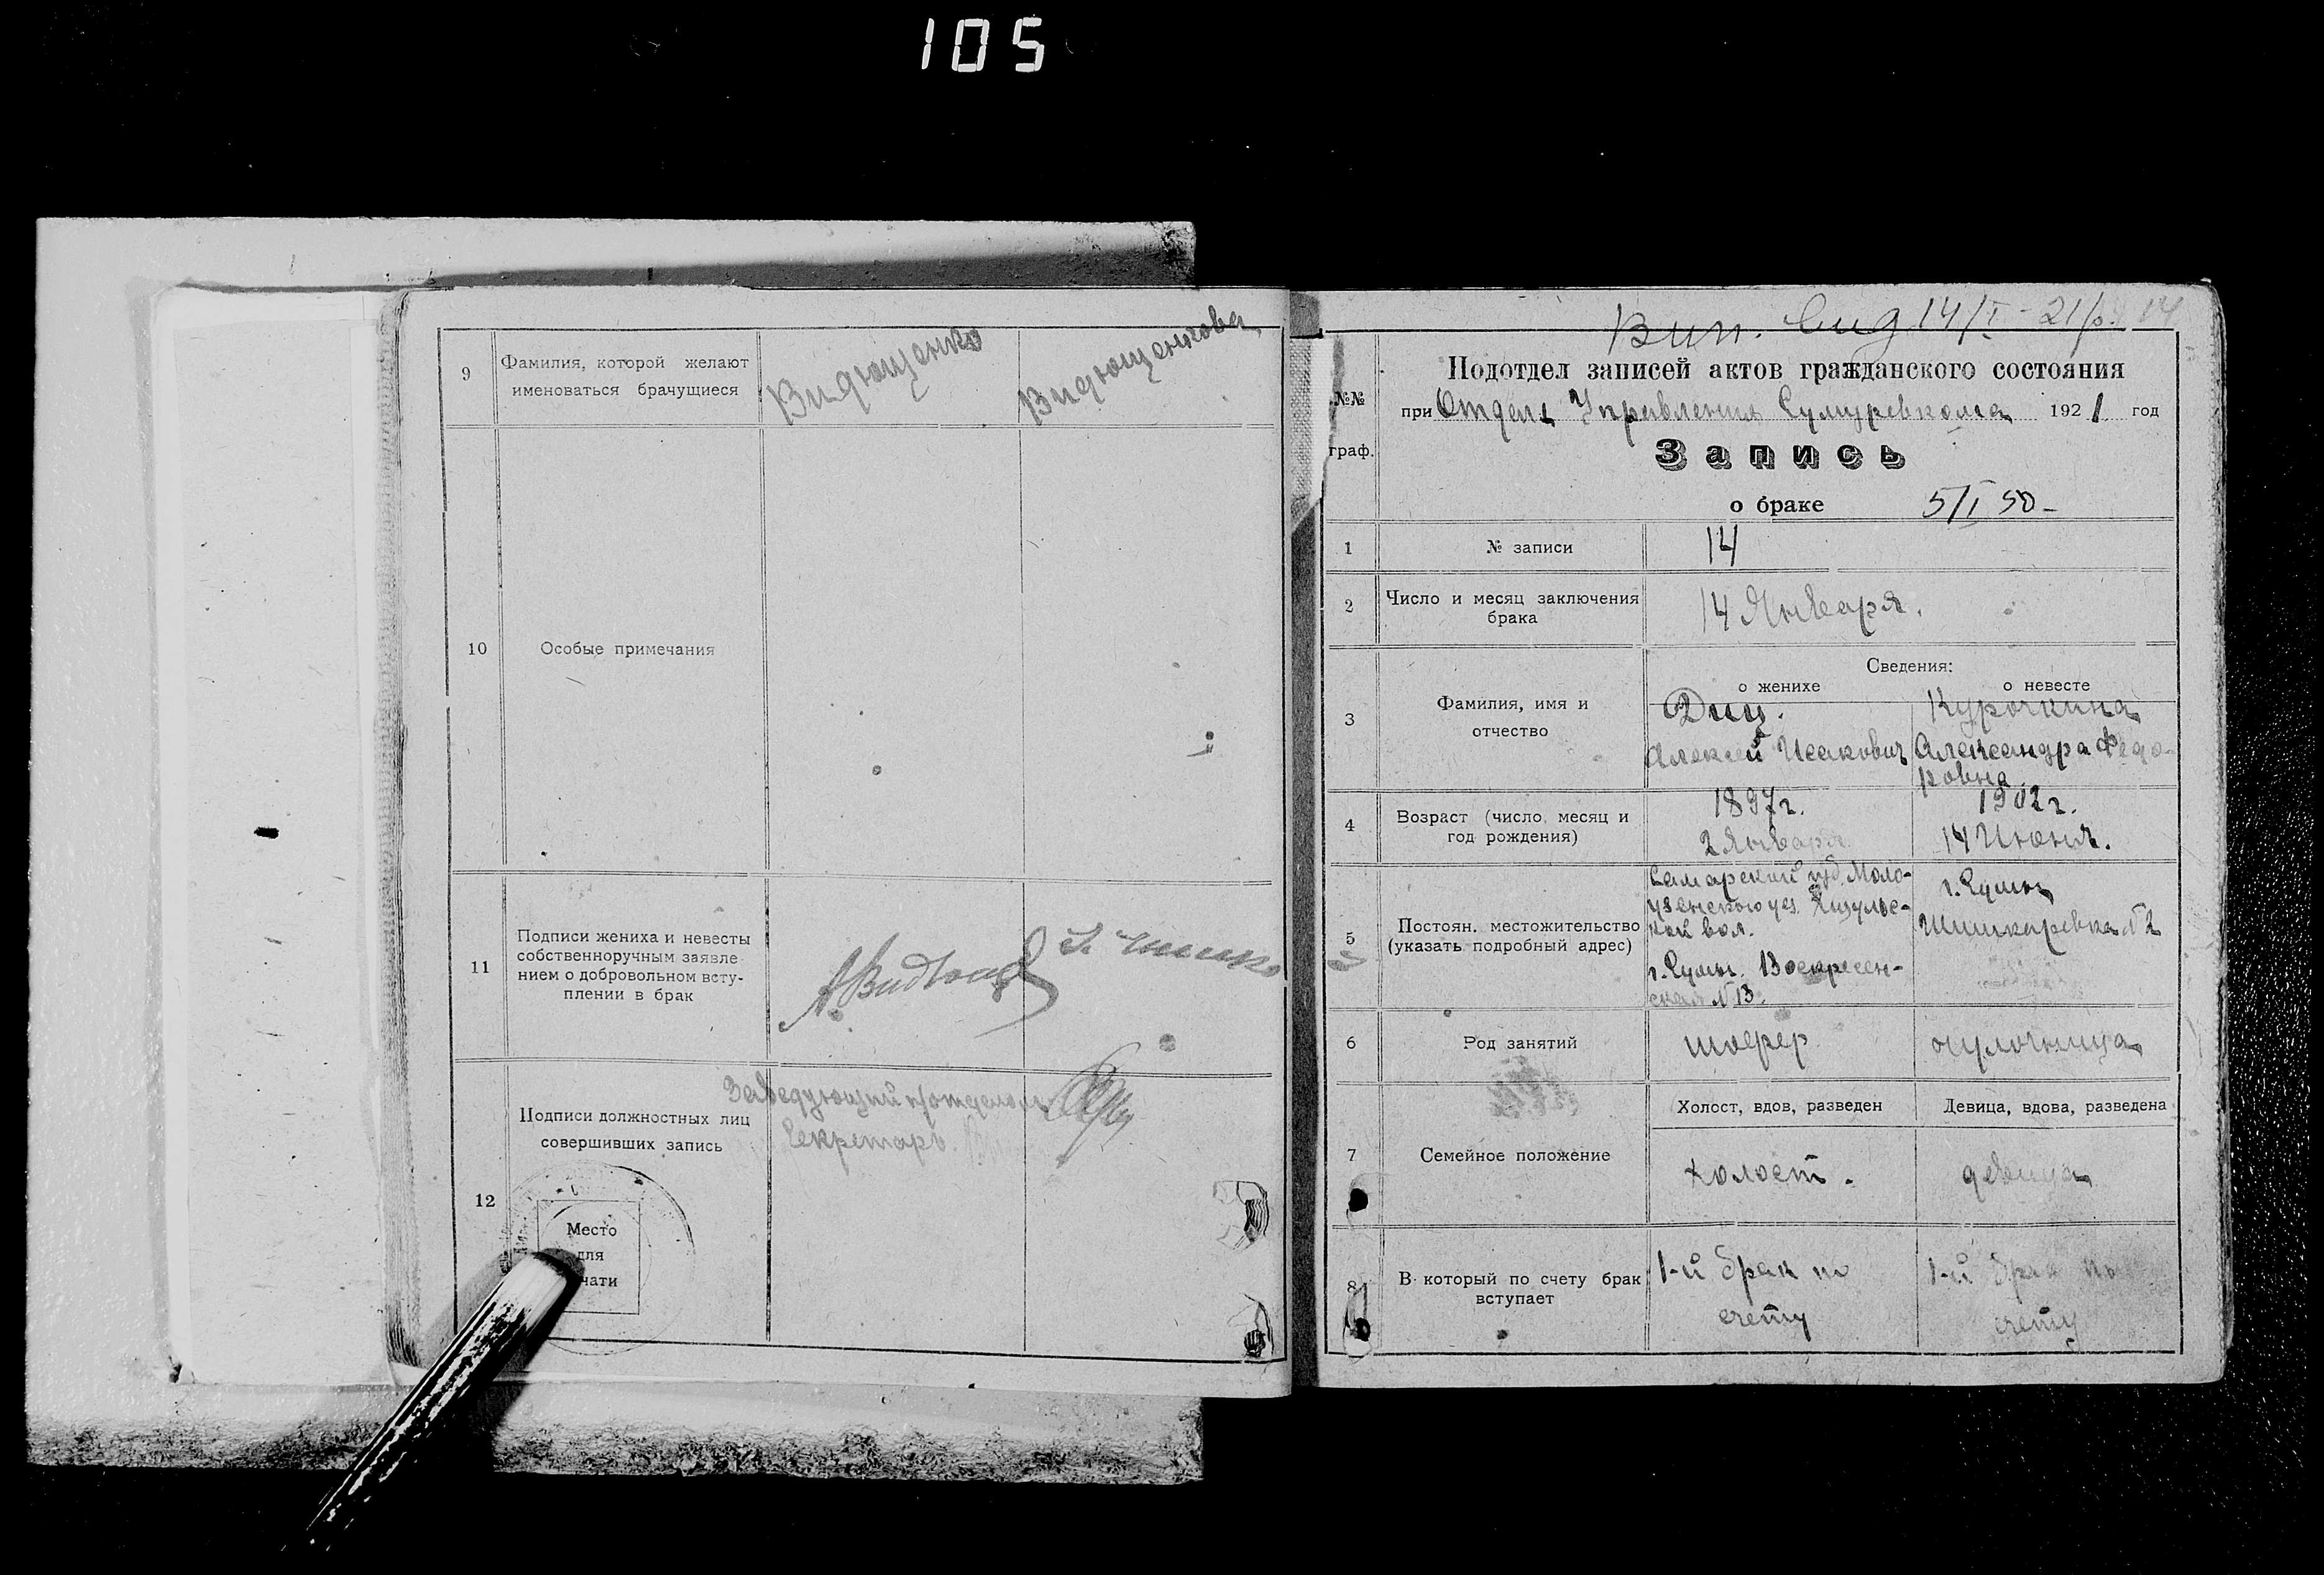 105
9
Фамилия, которой желают
именоваться брачущиеся
Видющенко
Видющенкова
10
Особые примечания
11
Подписи жениха и невесты
собственноручным заявле-
нием о добровольном всту-
плении в брак
Подписи должностных лиц
совершивших запись
Заведующий п/отделом
Секретарь
12
Место
для
чати
Вип. 14/I-21 р. 14
№№
граф.
Подотдел записей актов гражданского состояния
при Отделе Управления Сумуревкома 1921 год
Запись
о браке 5/I 50-
1
№ записи
14
2
Число и месяц заключения
брака
14 Января.
Сведения:
о женихе
о невесте
3
Фамилия, имя и
отчество
Диц.
Алексей Исакович
Курочкина
Александра Федо-
ровна
4
Возраст (число, месяц и
год рождения)
1897 г.
2 Января
1902 г.
14 Июня.
5
Постоян. местожительство
(указать подробный адрес)
Самарский губ. Моло-
узенского уез.
кой вол.
г. Сумы. Воскресен-
ская N 13.
г. Сумы
Шишкаревка N 2
6
Род занятий
шофер
чулочница
Холост, вдов, разведен
Девица, вдова, разведена
7
Семейное положение
холост.
девица
8
В который по счету брак
вступает
1-й брак по
счету
1-й брак по
счету